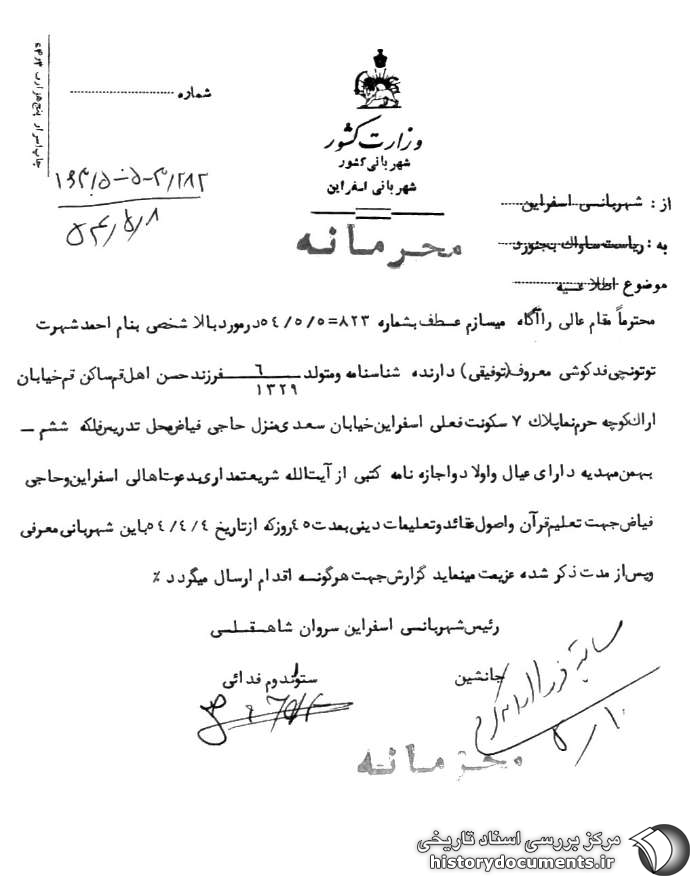 چاپ اسرار پنج هزار برگ
شماره
وزارت کشور
شهربانی کشور
شهربانی اسفراین
۵۴/۵/۸
از : شهربانی اسفراین
به : ریاست ساواک بجنورد
موضوع اطلاعیه
محرمانه
محترماً مقام عالی را آگاه میسازم عطف بشماره ۸۲۳=۵۴/۵/۵ در مورد بالا شخصی بنام احمد شهرت
توتونچی فدکوشی معروف (توفیقی) دارنده شناسنامه ومتولد ۶/۱۳۲۹ فرزند حسن اهل قم ساکن قم خیابان
اراک کوچه حرم نما پلاک ۷ سکونت فعلی اسفراین خیابان سعدی منزل حاجی فیاض محل تدریس فلکه ششم –
بهمن مهدیه دارای عیال واولاد و اجازه نامه کتبی از آیت الله شریعتمداری بدعوت اهالی اسفراین وحاجی
فیاض جهت تعلیم قرآن واصول عقائد وتعلیمات دینی بمدت ۴۵ روز که از تاریخ ۵۴/۴/۴ باین شهربانی معرفی
وپس از مدت ذکر شده عزیمت مینماید گزارش جهت هرگونه اقدام ارسال میگردد ٪
رئیس شهربانی اسفراین سروان شاهقلی
جانشین
ستواندوم فدائی
محرمانه
مرکز بررسی اسناد تاریخی
historydocuments.ir